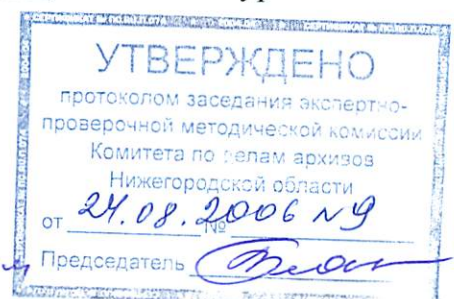 УТВЕРЖДЕНО
протоколом заседания экспертно-
проверочной методической комиссии
Комитета по делам архивов
Нижегородской области
от 24.08.2006 № N 9
Председатель